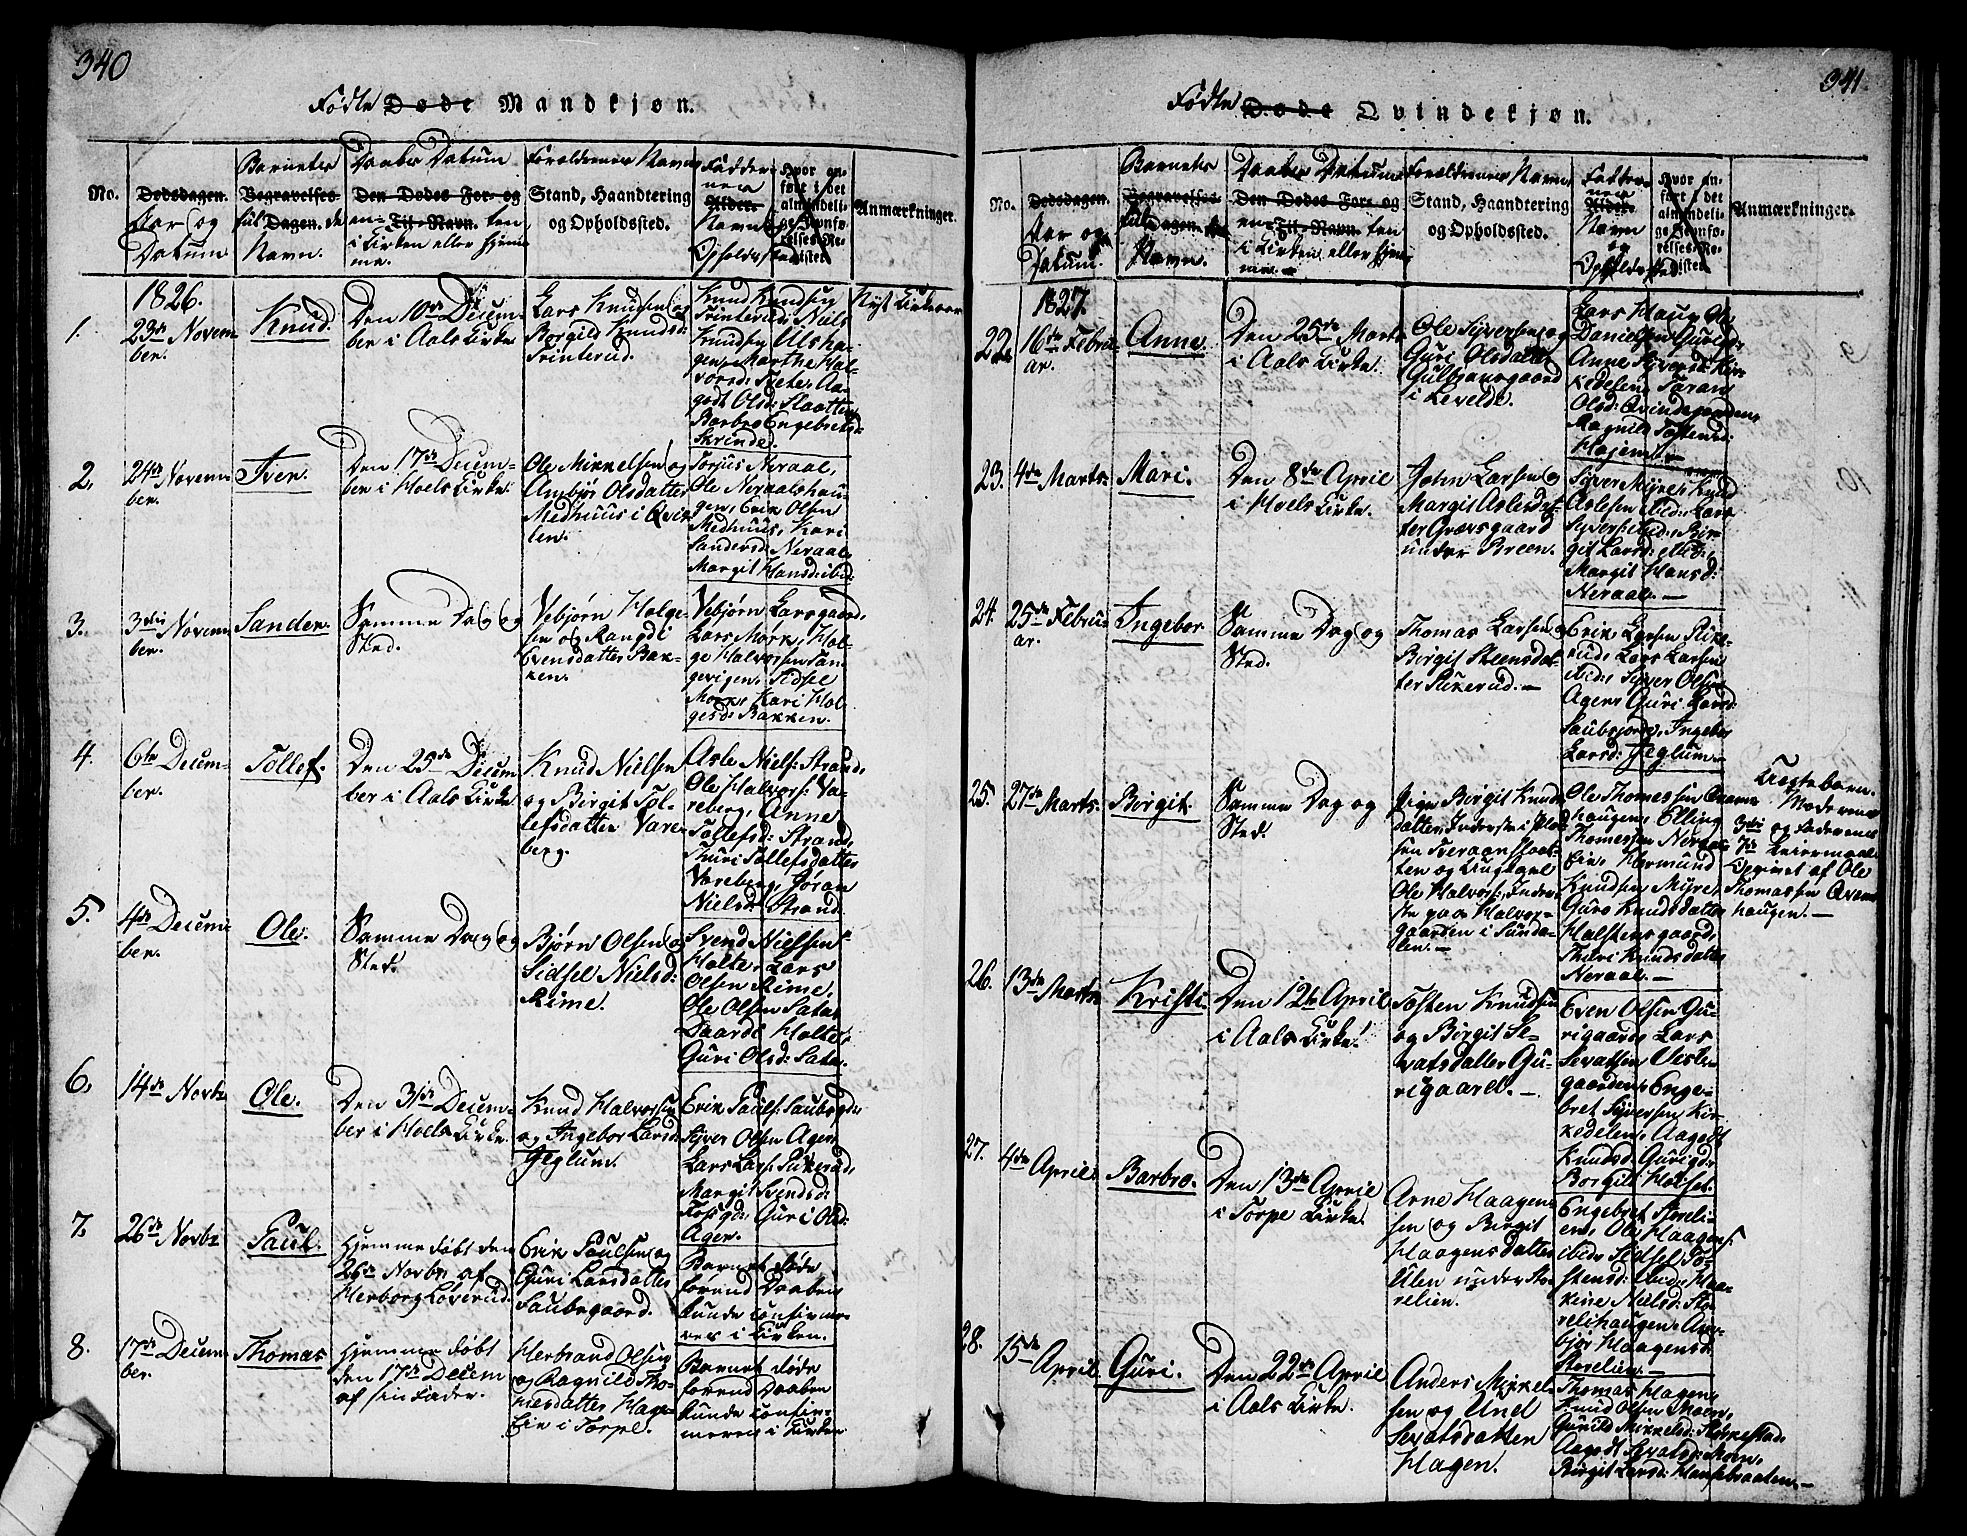 340
Fødte Døde Mandkjøn.
No.
Dødsdagen.
Aar og
Datum
Barnets
Begravelses
fulde Dagen.
Navn.
Daabs Datum
Den Dødes For- og
en- Til-Navn. ten
i Kirken eller Hjem-
me.
Forældrenes Navn
Stand, Haandtering
og Opholdssted.
Faddernes
Alder.
Navn
Opholdssted
Hvor an-
ført i det
almindeli-
ge Jevnfø-
relses-Re-
gister.
Anmærkninger.
1826.
1.
23de Novem-
ber.
Knud.
Den 10de Decem-
ber i Aals Kirke
Lars Knudsen og
Borgild Knudsd:
Trinterud.
Knud Knudsen
Trinterud, Niels
Knudsen Ulsha-
gen, Marthe Hal-
vorsd: Tvete, Aa-
godt Olsd: Slaatten
Barbro Engebretsd:
Skrinde.
Nyt Kirkeaar
2.
24de Novem-
ber.
Iver.
Den 17de Decem-
ber i Hoels Kirke.
Ole Mikkelsen og
Ambjør Olsdatter
Medhuus i Qvin-
ten.
Torjus Neraal,
Ole Neraalshau-
gen, Erik Olsen
Medhuus, Kari
Sandersd: Neraal,
Margit Hansd: ibid:
3.
3die Novem-
ber.
Sander.
Samme Dag og
Sted.
Vebjørn Holge-
sen og Rangdi
Evensdatter Bak-
ken.
Vebjørn Larsgaard,
Lars Mørk, Hol-
ge Halvorsen San-
gevigen, Sidsel
Mørk, Kari Hol-
gesd: Bakken.
4.
6te Decem-
ber.
Tollef.
Den 25de Decem-
ber i Aals Kirke
Knud Nielsen
og Birgit Tol-
lefsdatter Vare-
berg.
Asle Niels: Strand,
Ole Halvors: Va-
reberg, Anne
Tollefsd: Strand,
Thuri Tollefsdatter
Vareberg, Jøran
Nielsd: Strand.
5.
4de Decem-
ber.
Ole.
Samme Dag og
Sted.
Bjørn Olsen og
Sidsel Nielsd:
Rime.
Svend Nielsen
Holte, Lars
Olsen Rime,
Ole Olsen Sata,
Daarde Holte,
Guri Olsd: Sata.
6.
14de Novbr
Ole.
Den 31de Decem-
ber i Hoels Kirke.
Knud Halvorsen
og Ingebor Larsd:
Jeglum.
Erik Pauls: Saubsgd:
Syver Olsen Ager,
Lars Lars: Rikerud,
Margit Svendsd:
Fossgd: Guri Olsd:
Ager.
7.
26de Novbr
Paul.
Hjemme døbt den
26de Novbr af
Herborg Løverud.
Erik Paulsen og
Guri Larsdatter
Saubsgaard.
Barnet døde
forend Daaben
kunde confirme-
res i Kirken.
8.
17de Decem-
ber.
Thomas
Hjemme døbt
den 17de Decem
af sin Fader.
Herbrand Olsen
og Ragnild Tho-
mesdatter Hage-
Eie i Torpe.
Barnet døde
forend Daaben
kunde confir-
meres i Kirken
341.
Fødte Døde Qvindekjøn.
No.
Dødsdagen.
Aar og
Datum.
Barnets
Begravelses
fulde Dagen.
Navn.
Daabs Datum
Den Dødes For- og
en- Til-Navn. ten
i Kirken eller Hjem-
me.
Forældrenes Navn,
Stand, Haandtering
og Opholdssted.
Faddernes
Alder.
Navn
og
Opholdssted.
Hvor an-
ført i det
almindeli-
ge Jevnfø-
relses-Re-
gister.
Anmærkninger.
1827.
22.
16de Febru-
ar.
Anne.
Den 25de Marts
i Aals Kirke.
Ole Syversen og
Guri Olsdatter
Gulhansgaard
i Leveld.
Lars Haugen,
Danielsen Gurigd:
Anne Syversd: Kir-
kedelen, Taran
Olsd: Qvindegaarden,
Magnild Tostensd:
Højem.—
23.
4de Marts.
Mari.
Den 8de April
i Hoels Kirke.
John Larsen og
Margit Aslesdat-
ter Grævsgaard
under Breen.
Syver Myre, Knud
Aslesen ibid: Lars
Syvers: ibid: Bir-
git Larsd: ibid:,
Margit Hansd:
Neraal.—
24.
25de Febru-
ar.
Ingebor.
Samme Dag og
Sted.
Thomas Larsen og
Birgit Steensdat-
ter Rikerud.—
Erik Larsen Rike-
rud, Lars Larsen
ibid:, Syver Olsen
Ager, Guri Larsd:
Saubsjord, Ingebor
Larsd: Jeglum.—
25.
27de Marts.
Birgit.
Samme Dag og
Sted.
Pige Birgit Knuds-
datter, Inderste i Plad-
sen Sveraanslaat-
ten og Ungkarl
Ole Halvors: Inder-
ste paa Halvor-
gaarden i Sunda-
len.—
Ole Thomessen Qværn-
haugen, Elling
Thomessen Neraal-
Eie, Hermund
Knudsen Myre,
Guro Knudsdatter
Halstensgaard,
Thuri Knudsdatter
Neraal.—
Uægte barn.
Moderens
3die og Faderens
7de Leiermaal
Opgivet af Ole
Thomassen Qværn-
haugen.—
26.
13de Marts
Kristi.
Den 12te April
i Aals Kirke.
Tosten Knudsen
og Birgit Se-
vatsdatter Gu-
rigaard.—
Even Olsen Gu-
rigaard, Lars
Sevatsen Vester-
gaarden, Enge-
bret Syversen Kir-
kedelen, Aagodt
Knudsd: Gurigd:
Borgild Holset.
27.
4de April
Barbro.
Den 13de April
i Torpe Kirke.
Arne Haagen-
sen og Birgit
Haagensdatter
Ulen under Sto-
relien.
Engebret Storeli-
en, Ole Haagens:
ibid: Sidsel To-
stensd: ibid: Haa-
kine Nielsd: Sto-
relihaugen, Am-
bjør Haagensd:
Storelien.—
28.
15de
April.
Guri.
Den 22de April
i Aals Kirke.
Anders Mikkel-
sen og Unel
Sevatsdatter
Hagen.
Thomas Hagen,
Knud Olsen Moen,
Gunild Mikkelsd: Størkestad,
Aagodt Sevatsd: Moen,
Birgit Larsd: Hansebraaten.—